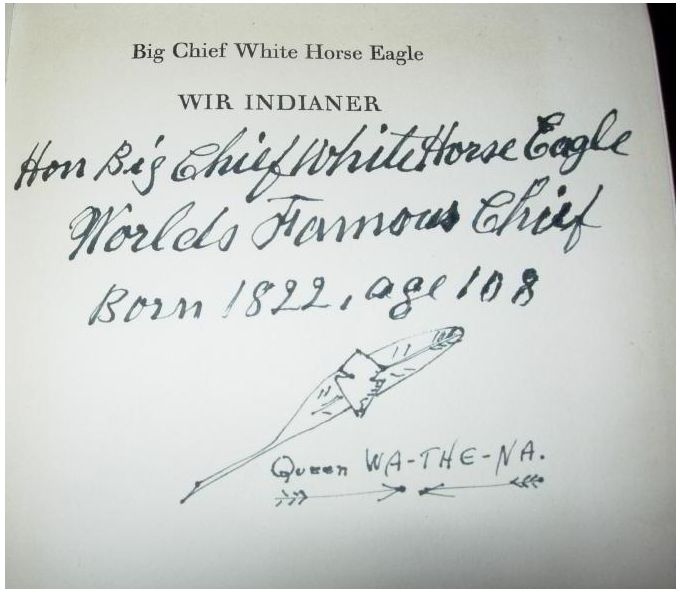 Big Chief White Horse Eagle
WIR INDIANER
Hon Big Chief White Horse Eagle
Worlds Famous Chief
Born 1822, age 108
Queen WA-THE-NA.